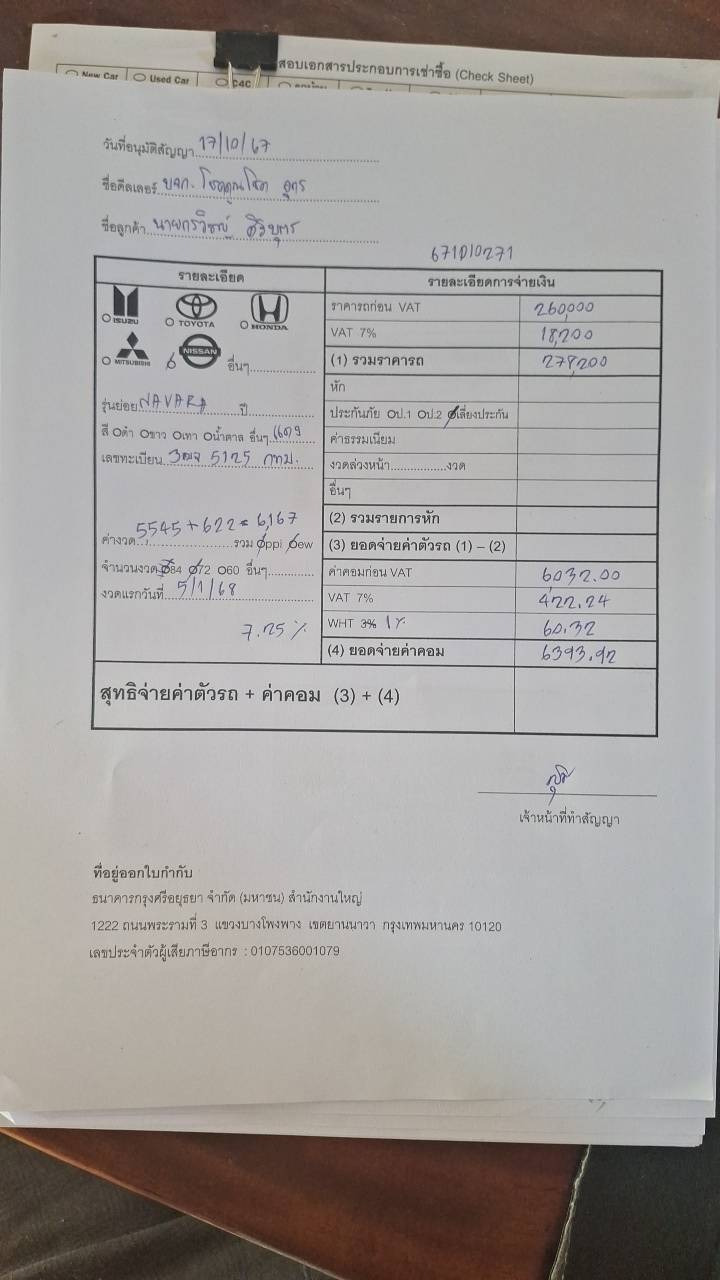 สอบเอกสารประกอบการเช่าซื้อ (Check Sheet)
New Car Used Car C4C
วันที่อนุมัติสัญญา 17/10/67
ชื่อดีลเลอร์ บจก.
ชื่อลูกค้า
671010271
รายละเอียด
รายละเอียดการจ่ายเงิน
ISUZU TOYOTA HONDA
MITSUBISHI NISSAN อื่นๆ
รุ่นย่อย NAVARA ปี
สี ดำ ขาว เทา น้ำตาล อื่นๆ
เลขทะเบียน 5125 กทม.
5545 + 622 = 6,167
ค่างวด รวม ppi ew
จำนวนงวด 84 72 60 อื่นๆ
งวดแรกวันที่ 5/1/68
7.25 %
ราคารถก่อน VAT 260,000
VAT 7% 18,200
(1) รวมราคารถ 278,200
หัก
ประกันภัย ป.1 ป.2 เลี่ยงประกัน
ค่าธรรมเนียม
งวดล่วงหน้า งวด
อื่นๆ
(2) รวมรายการหัก
(3) ยอดจ่ายค่าตัวรถ (1) – (2)
ค่าคอมก่อน VAT 6,032.00
VAT 7% 422.24
WHT 3% 1% 60.32
(4) ยอดจ่ายค่าคอม 6393.92
สุทธิจ่ายค่าตัวรถ + ค่าคอม (3) + (4)
เจ้าหน้าที่ทำสัญญา
ที่อยู่ออกใบกำกับ
ธนาคารกรุงศรีอยุธยา จำกัด (มหาชน) สำนักงานใหญ่
1222 ถนนพระรามที่ 3 แขวงบางโพงพาง เขตยานนาวา กรุงเทพมหานคร 10120
เลขประจำตัวผู้เสียภาษีอากร : 0107536001079